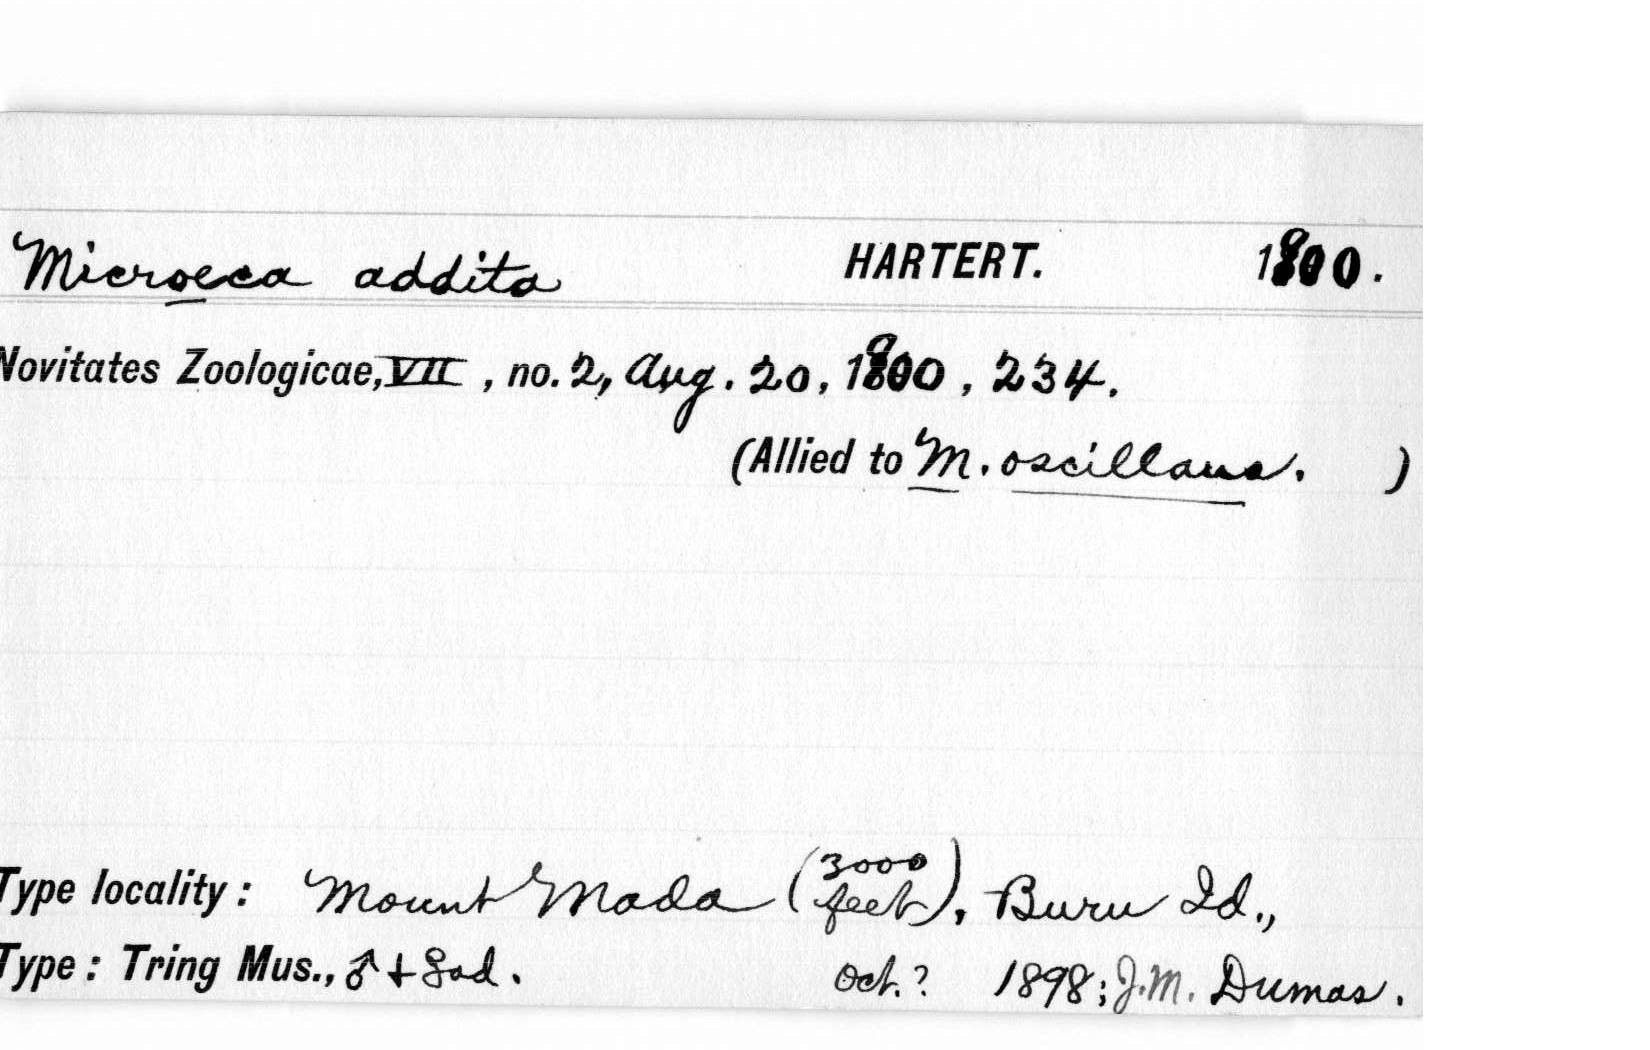 Microeca addita HARTERT. 1900.
Novitates Zoologicae, VII, no. 2, Aug. 20, 1900, 234.
(Allied to M. oscillans. )
Type locality: Mount Mada (3000 feet), Buru Id.,
Type: Tring Mus., ♂ ad. Oct.? 1898; J.M. Dumas.